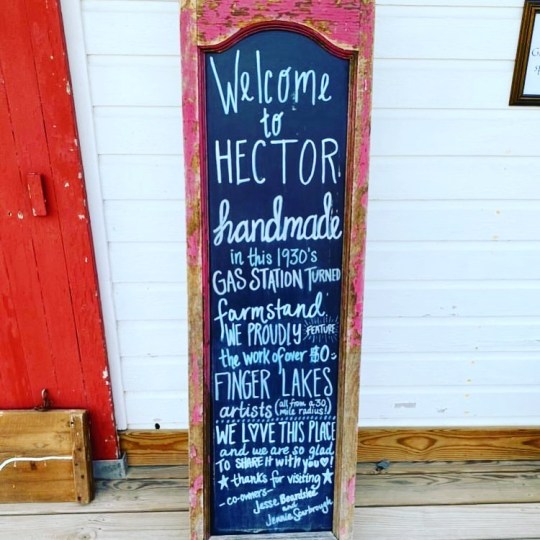 Welcome
to
HECTOR
handmade
in this 1930's
GAS STATION TURNED
farmstand.
WE PROUDLY FEATURE
the work of over
FINGER LAKES
artists (all from a 30 mile radius!)
WE LOVE THIS PLACE
and we are so glad
TO SHARE it with you!
thanks for visiting
-co-owners-
Jesse Beardslee
and
Jennie Scarbrough